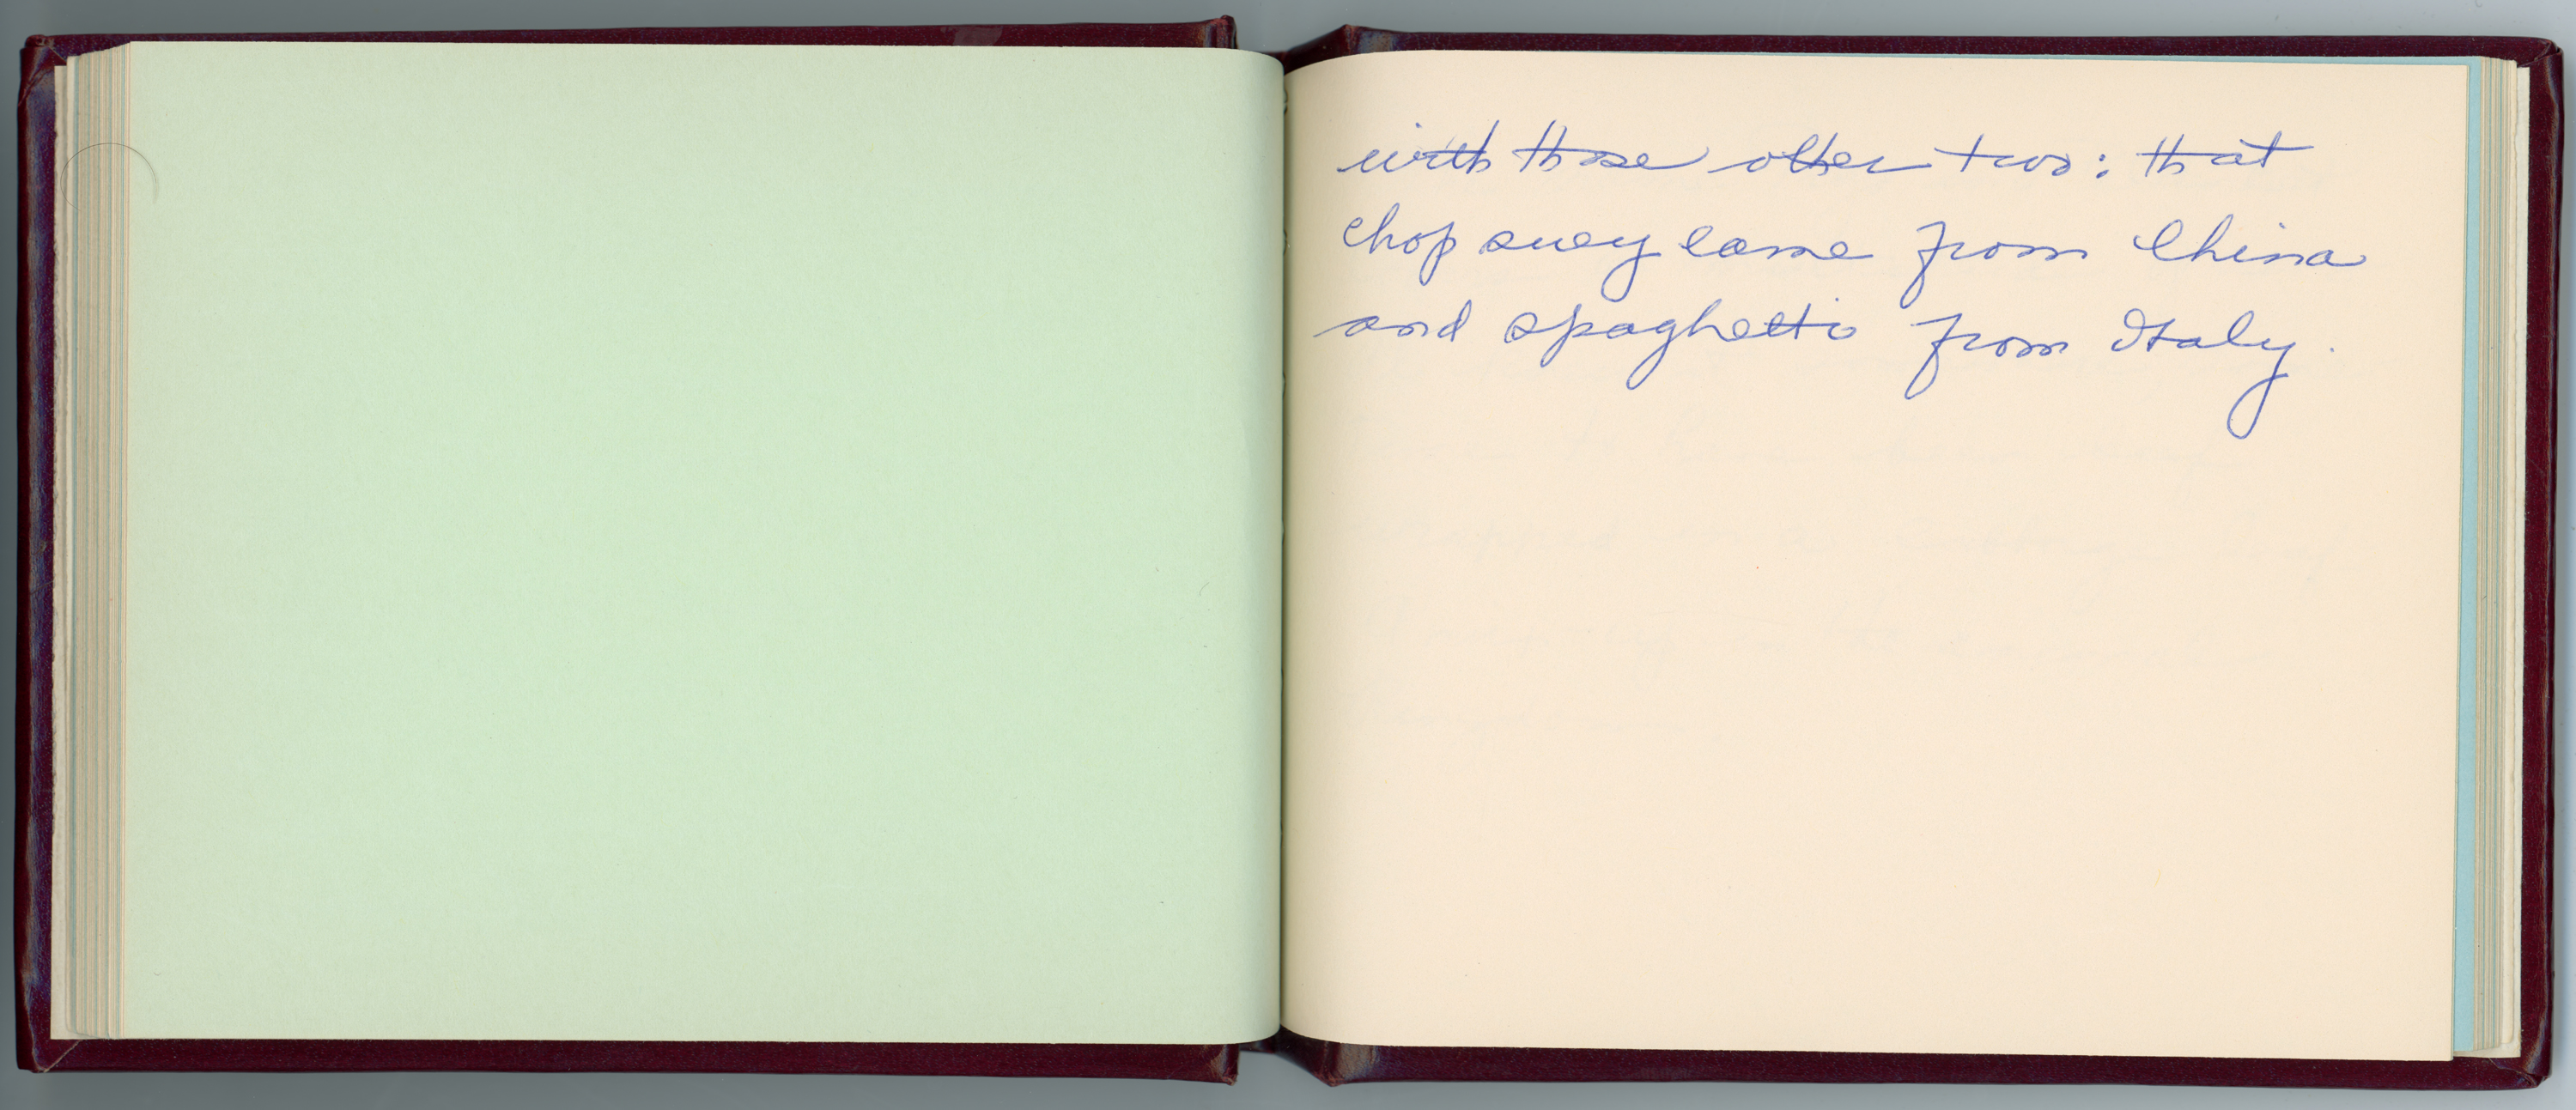 with those other two: that
chop suey came from China
and spaghetti from Italy.